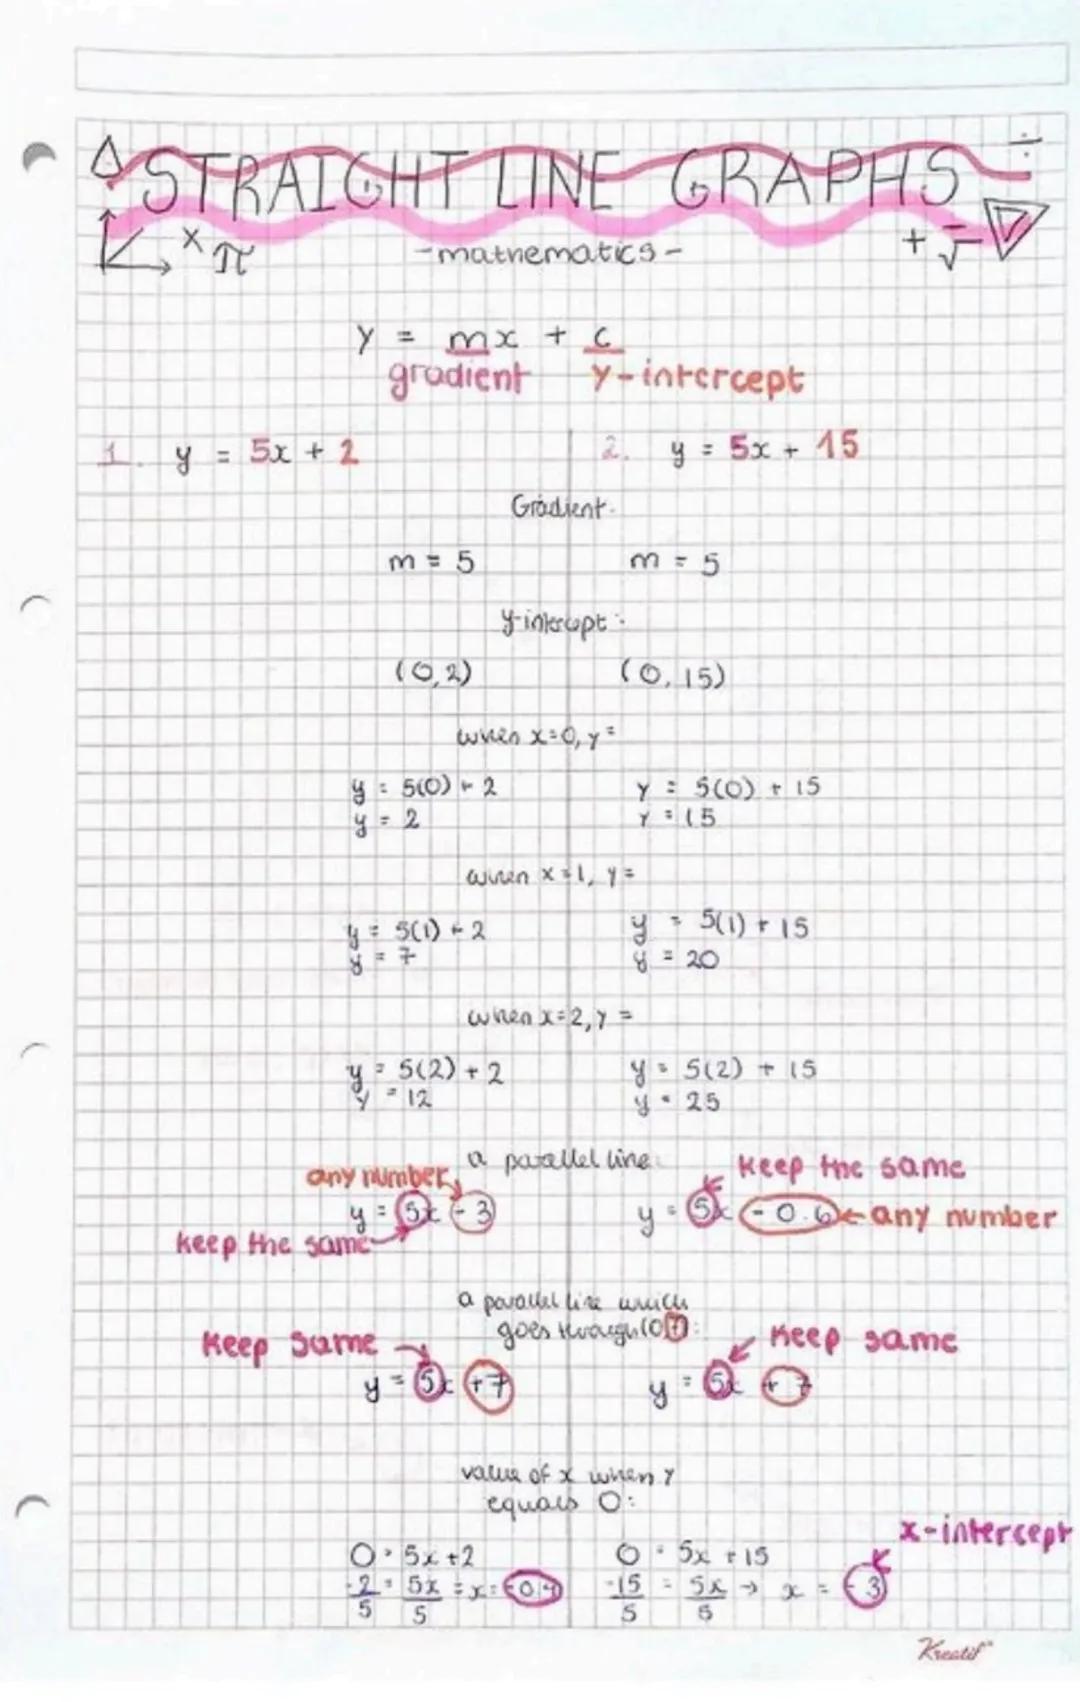 STRAIGHT LINE GRAPHS
÷
× π
-mathematics-
+ √
y = mx + c
gradient y-intercept
1. y = 5x + 2
2. y = 5x + 15
Gradient.
m = 5 m = 5
y-intercept:
(0,2) (0,15)
when x=0, y=
y = 5(0) + 2 y = 5(0) + 15
y = 2 y = 15
when x=1, y=
y = 5(1) + 2 y = 5(1) + 15
y = 7 y = 20
when x=2, y=
y = 5(2) + 2 y = 5(2) + 15
y = 12 y = 25
a parallel line: keep the same
any number
y = 5x - 3 y = 5x - 0.6 ← any number
keep the same
a parallel line which
goes through (0,7):
keep same keep same
y = 5x + 7 y = 5x + 7
value of x when y
equals 0:
x-intercept
0 = 5x + 2 0 = 5x + 15
-2/5 = 5x/5 = x = -0.4 -15/5 = 5x/5 → x = -3
Kreatif